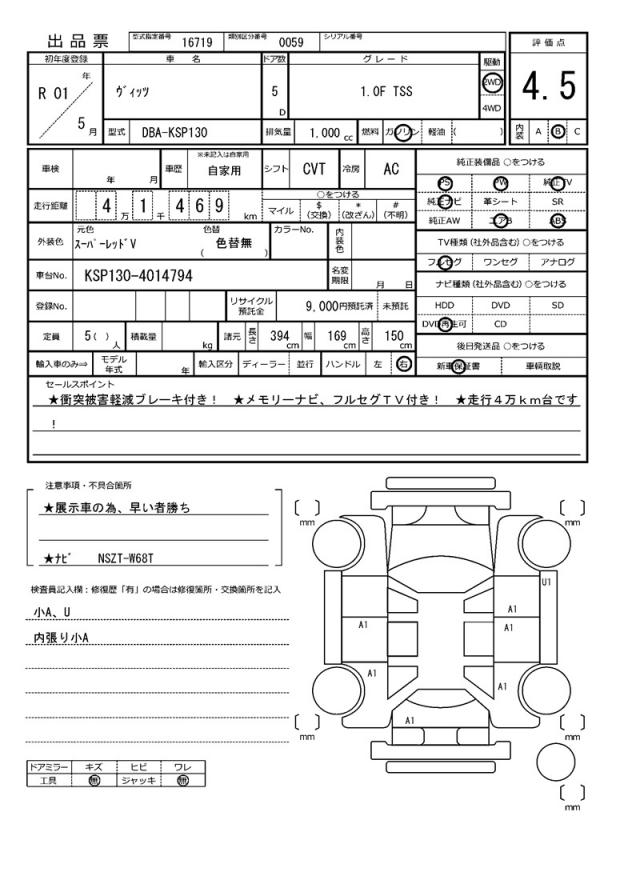 出品票 型式指定番号 16719 類別区分番号 0059 シリアル番号
評価点
初年度登録 車名 ドア数 グレード 駆動
R 01 年 ヴィッツ 5 D 1.0F TSS 2WD 4.5
5 月 4WD
型式 DBA-KSP130 排気量 1.000 cc 燃料 ガソリン 軽油 ( ) 内装 A B C
車検 年 月 車歴 ※未記入は自家用 自家用 シフト CVT 冷房 AC 純正装備品 ○をつける
PS PW 純正TV
走行距離 4 万 1 千 4 6 9 km ○をつける 純正ナビ 革シート SR
マイル $ (交換) * (改ざん) # (不明) 純正AW エアB ABS
外装色 元色 スーパーレッドV 色替 ( 色替無 ) カラーNo. 内装色 TV種類 (社外品含む) ○をつける
フルセグ ワンセグ アナログ
車台No. KSP130-4014794 名変期限 月 日 ナビ種類 (社外品含む) ○をつける
登録No. リサイクル預託金 9,000円預託済 未預託 HDD DVD SD
DVD再生可 CD
定員 5( ) 人 積載量 kg 諸元 長さ 394 cm 幅 169 cm 高さ 150 cm 後日発送品 ○をつける
輸入車のみ⇒ モデル年式 年 輸入区分 ディーラー 並行 ハンドル 左 右 新車保証書 車輌取説
セールスポイント
★衝突被害軽減ブレーキ付き! ★メモリーナビ、フルセグTV付き! ★走行4万km台です
!
注意事項・不具合箇所
★展示車の為、早い者勝ち
★ナビ NSZT-W68T
検査員記入欄:修復歴「有」の場合は修復箇所・交換箇所を記入
小A、U
内張り小A
ドアミラー キズ ヒビ ワレ
工具 無 ジャッキ 無
[ ] mm
[ ] mm
U1
A1
A1 A1
A1 A1
A1
[ ] mm
[ ] mm
[ ] mm